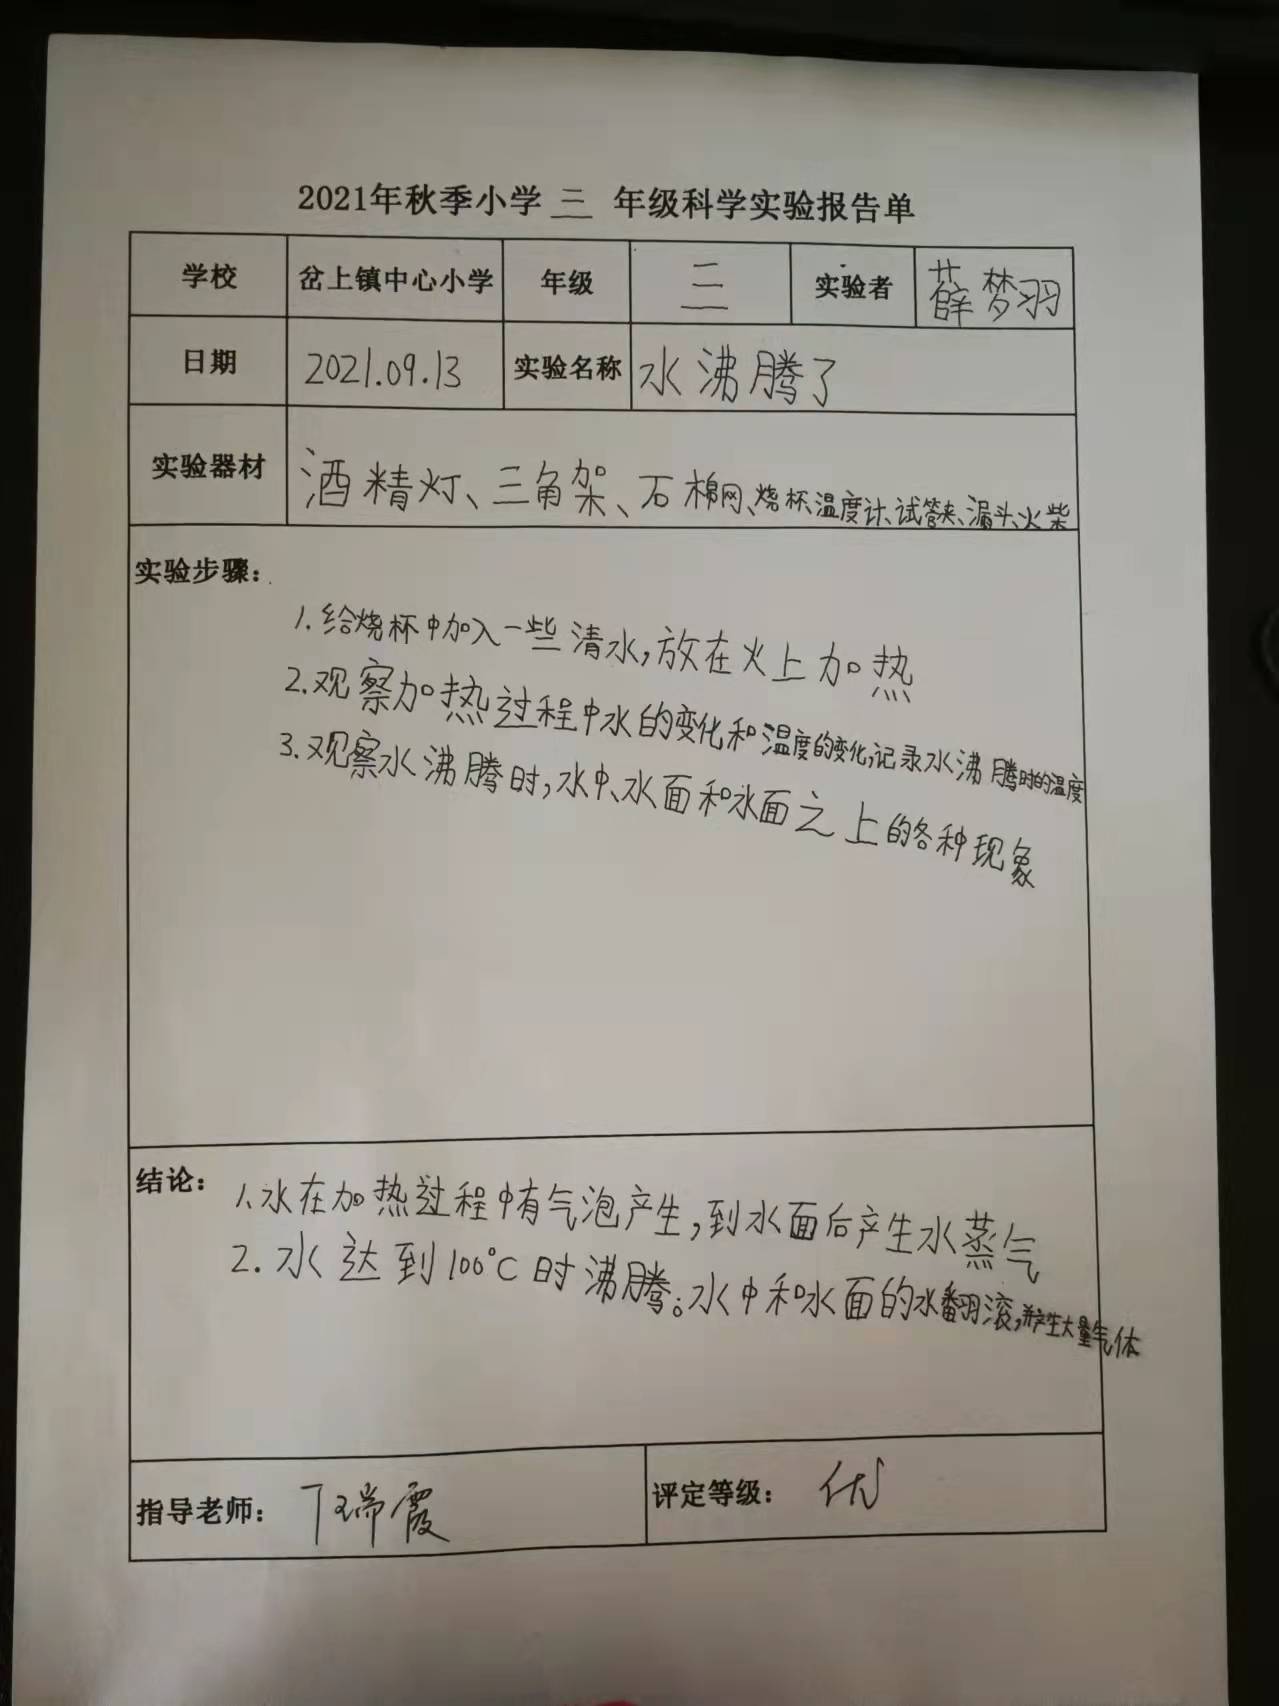 2021年秋季小学 三 年级科学实验报告单
学校 岔上镇中心小学 年级 三 实验者 薛梦羽
日期 2021.09.13 实验名称 水沸腾了
实验器材 酒精灯、三角架、石棉网、烧杯、温度计、试管夹、漏斗、火柴
实验步骤：
1. 给烧杯中加入一些清水,放在火上加热
2. 观察加热过程中水的变化和温度的变化,记录水沸腾时的温度
3. 观察水沸腾时,水中、水面和水面之上的各种现象
结论：
1. 水在加热过程中有气泡产生,到水面后产生水蒸气
2. 水达到100°C时沸腾。水中和水面的水翻滚,并产生大量气体
指导老师： 丁瑞霞 评定等级： 优